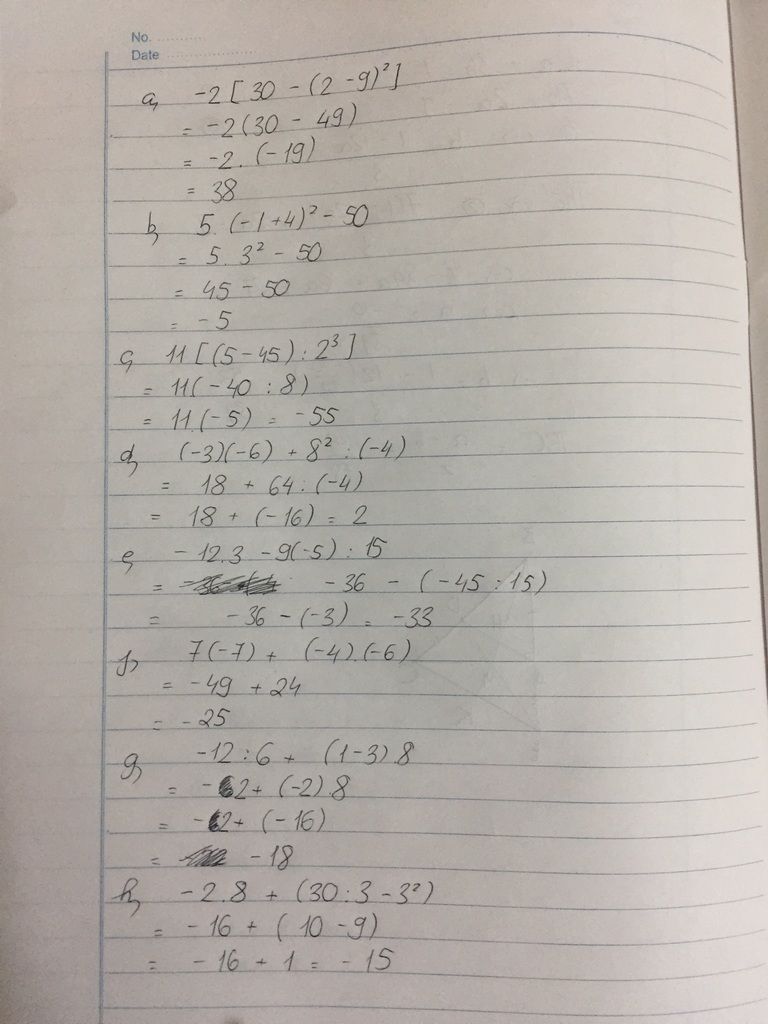 No. ............
Date ........................
a, -2 [ 30 - (2 - 9)² ]
= -2 (30 - 49)
= -2 . (-19)
= 38
b, 5 . (-1 + 4)² - 50
= 5 . 3² - 50
= 45 - 50
= -5
c, 11 [ (5 - 45) : 2³ ]
= 11 ( -40 : 8)
= 11. (-5) = -55
d, (-3)(-6) + 8² : (-4)
= 18 + 64 : (-4)
= 18 + (-16) = 2
e, -12.3 - 9(-5) : 15
= -36 - (-45 : 15)
= -36 - (-3) = -33
f, 7(-7) + (-4).(-6)
= -49 + 24
= -25
g, -12 : 6 + (1 - 3) . 8
= -2 + (-2) . 8
= -2 + (-16)
= -18
h, -2 . 8 + (30 : 3 - 3²)
= -16 + ( 10 - 9)
= -16 + 1 = -15